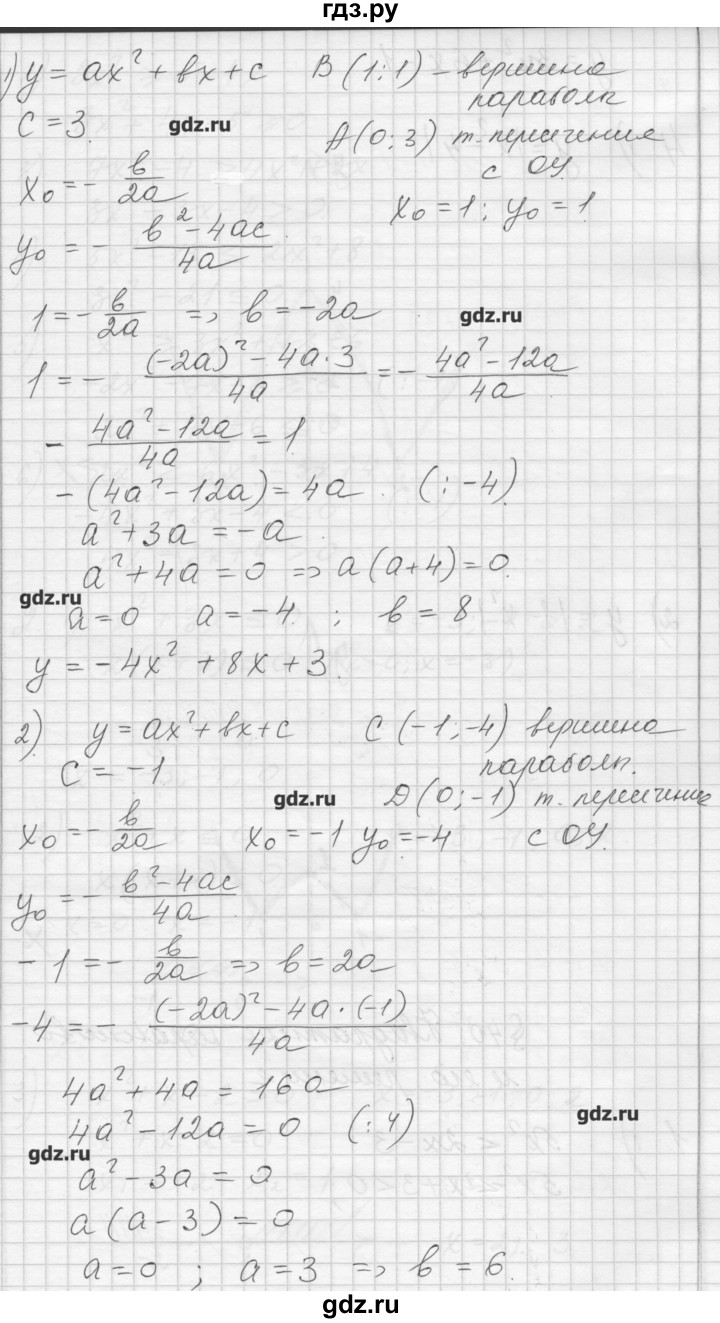 гдз.ру
1) y = ax² + bx + c B (1; 1) – вершина
параболы
c = 3. gdz.ru A(0; 3) т. пересечения
с OY.
x₀ = - b/2a x₀ = 1; y₀ = 1.
y₀ = - (b² - 4ac)/4a
1 = - b/2a => b = -2a gdz.ru
1 = - ((-2a)² - 4a·3)/4a = - (4a² - 12a)/4a
- (4a² - 12a)/4a = 1.
- (4a² - 12a) = 4a. (: -4).
a² + 3a = -a.
a² + 4a = 0 => a(a+4) = 0.
gdz.ru
a = 0 a = -4. ; b = 8
y = -4x² + 8x + 3.
2). y = ax² + bx + c C (-1; -4) вершина
параболы.
c = -1
gdz.ru D(0; -1) т. пересечения
x₀ = - b/2a x₀ = -1 y₀ = -4 с OY.
y₀ = - (b² - 4ac)/4a
-1 = - b/2a => b = 2a
-4 = - ((-2a)² - 4a·(-1))/4a
4a² + 4a = 16a
gdz.ru
4a² - 12a = 0 (: 4)
gdz.ru
a² - 3a = 0
a (a - 3) = 0
a = 0 ; a = 3 => b = 6.
gdz.ru